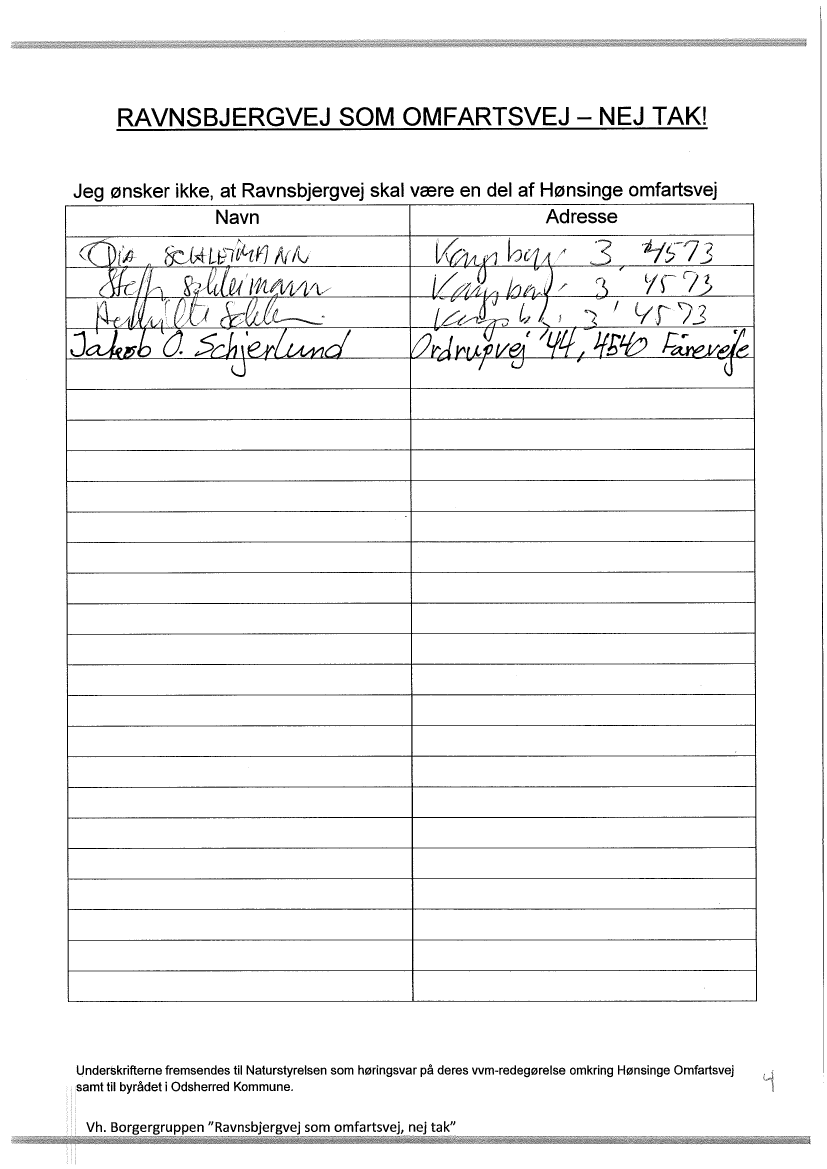 RAVNSBJERGVEJ SOM OMFARTSVEJ – NEJ TAK!
Jeg ønsker ikke, at Ravnsbjergvej skal være en del af Hønsinge omfartsvej
Navn Adresse
SCHLEIMANN 3, 4573
Steff Schleimann 3, 4573
3, 4573
Jakob O. Schjerlund Ordrupvej 44, 4540 Fåreveje
Underskrifterne fremsendes til Naturstyrelsen som høringsvar på deres vvm-redegørelse omkring Hønsinge Omfartsvej
samt til byrådet i Odsherred Kommune.
4
Vh. Borgergruppen "Ravnsbjergvej som omfartsvej, nej tak"